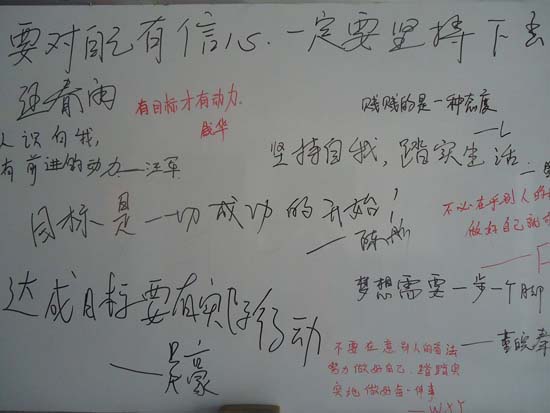 要对自己有信心.一定要坚持下去
有目标才有动力.
贱贱的是一种态度
—L
人识自我,
有前进的动力—汪军
坚持自我,踏实生活.
不必在乎别人的
做好自己就
目标是一切成功的开始!
—陈
梦想需要一步一个脚
达成目标要有实际行动
—吴豪
不要在意别人的看法
努力做好自己.踏踏实
实地做好每一件事
—WXY